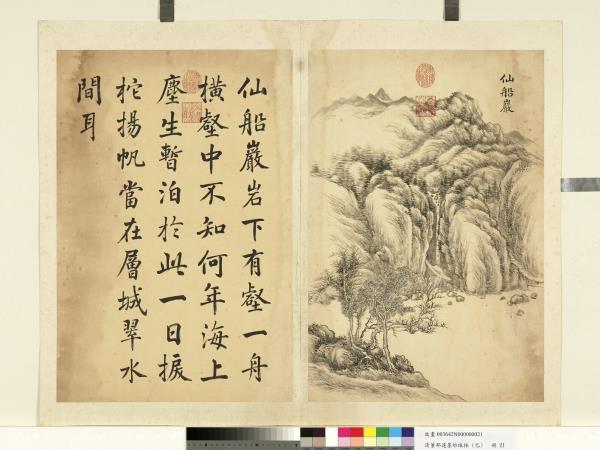 仙船巖
仙船巖岩下有壑一舟
橫壑中不知何年海上
塵生暫泊於此一日捩
柁揚帆當在層城翠水
間耳
故畫 003642N000000021
清董邦達墨妙珠林（巳） 冊 21